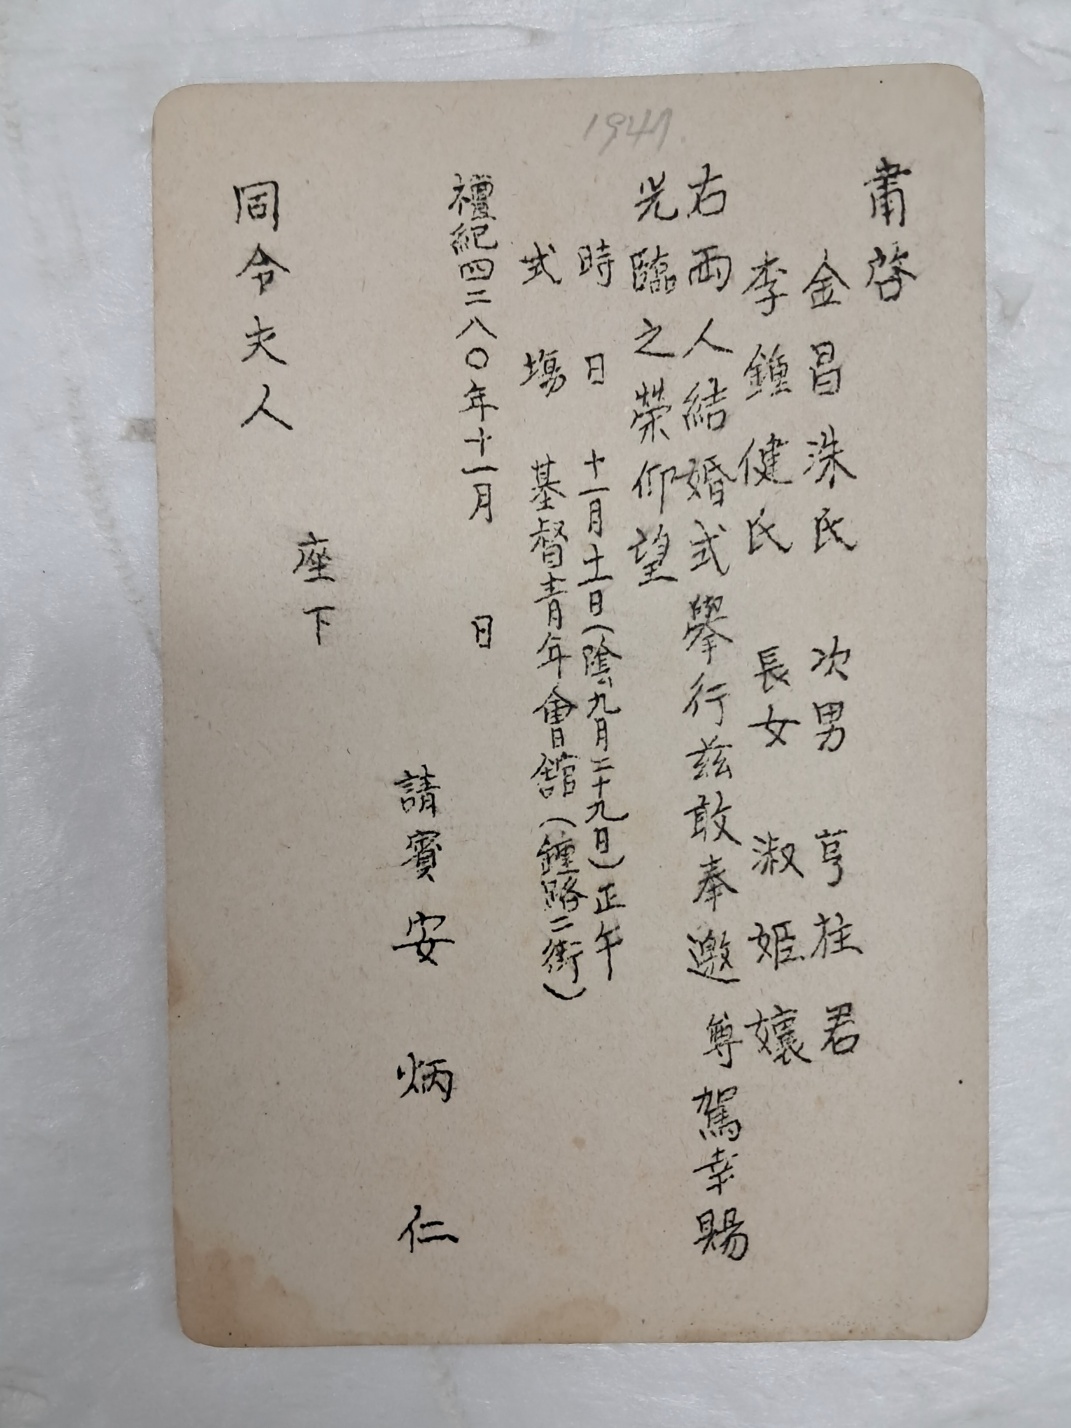 1947.
肅啓
金昌洙氏 次男 亨柱君
李鍾健氏 長女 淑姬孃
右兩人結婚式擧行玆敢奉邀 尊駕幸賜
光臨之榮仰望
時日 十一月十一日(陰九月二十九日)正午
式塲 基督青年會舘(鍾路二街)
檀紀四二八〇年十一月 日
請賓 安炳仁
座下
同令夫人